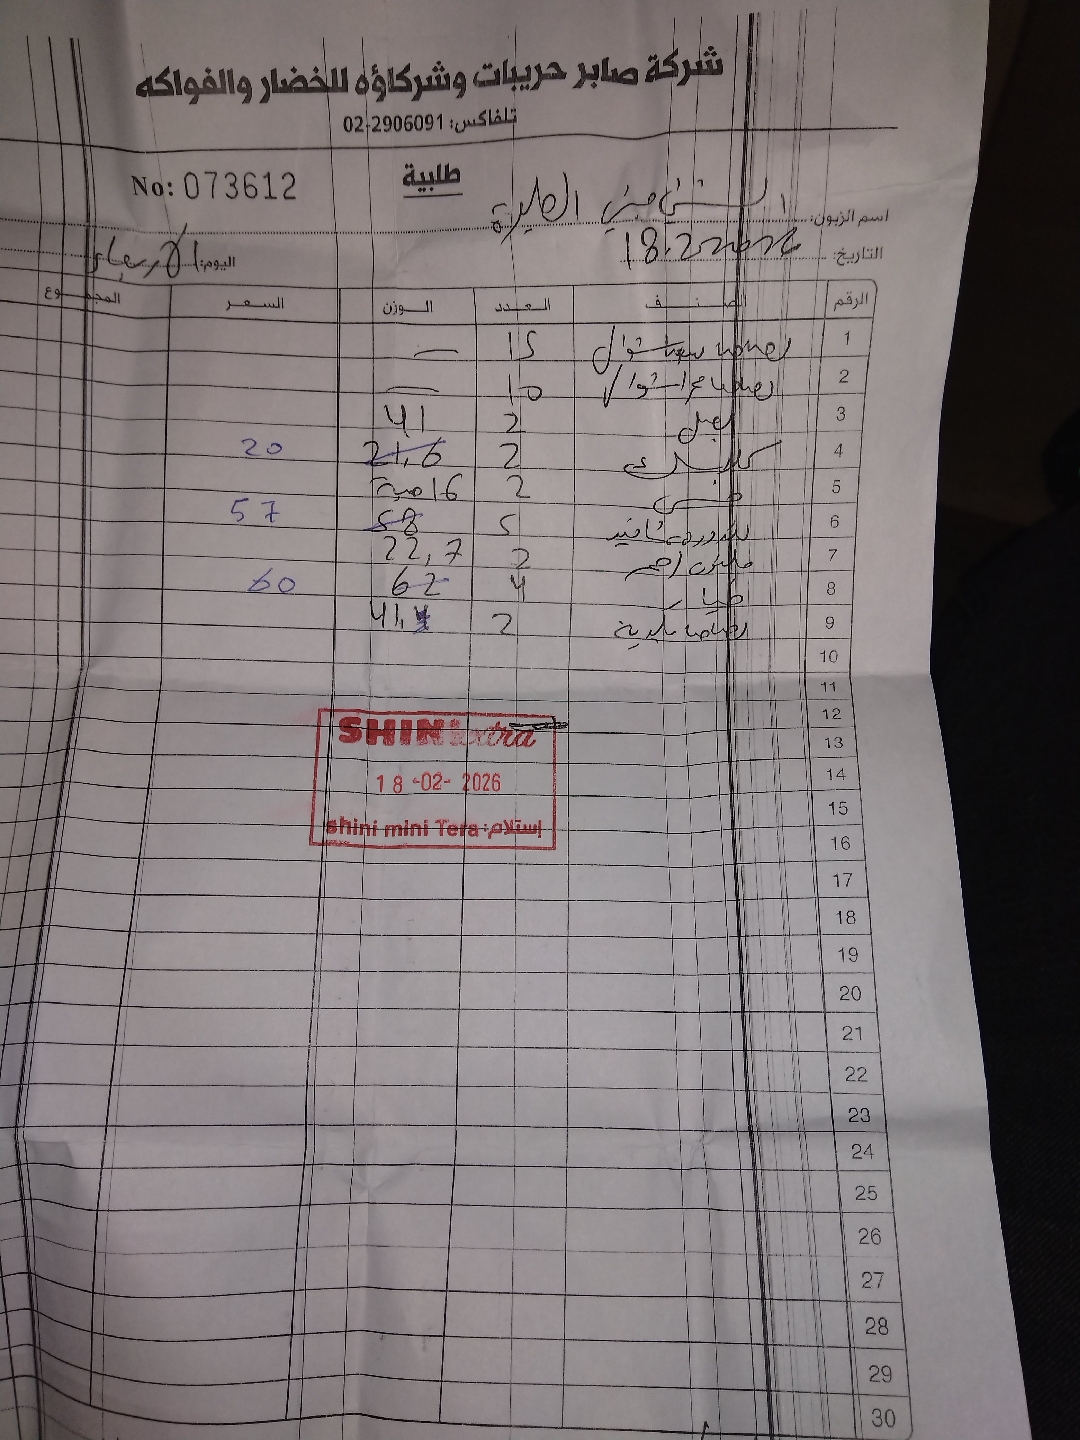 شركة صابر حريبات وشركاؤه للخضار والفواكه
تلفاكس: 02-2906091
No: 073612
طلبية
اسم الزبون: الشني ميني الطيرة
التاريخ: 18.2.2026
اليوم: الأربعاء
الرقم الصنف العدد الوزن السعر المجموع
1 15 —
2 10 —
3 بصل 2 41
4 2 21,6 20
5 خس 2 16 حبة
6 5 58 57
7 2 22,7
8 خيار 4 62 60
9 2 41,
10
11
12
13
14
15
16
17
18
19
20
21
22
23
24
25
26
27
28
29
30
SHINI extra
18-02-2026
shini mini Tera :إستلام